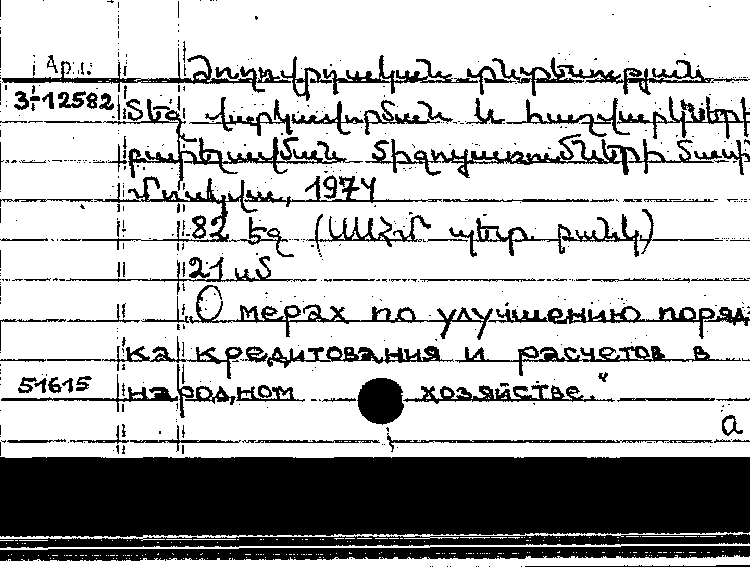 Арм.
Ժողովրդական տնտեսության
3-12582
մեջ վարկավորման և հաշվարկների
բարելավման միջոցառումների մասին
Մոսկվա, 1974
82 էջ (ՍՍՀՄ պետ. բանկ)
21 սմ
„О мерах по улучшению поряд
ка кредитования и расчетов в
51615
народном хозяйстве."
а